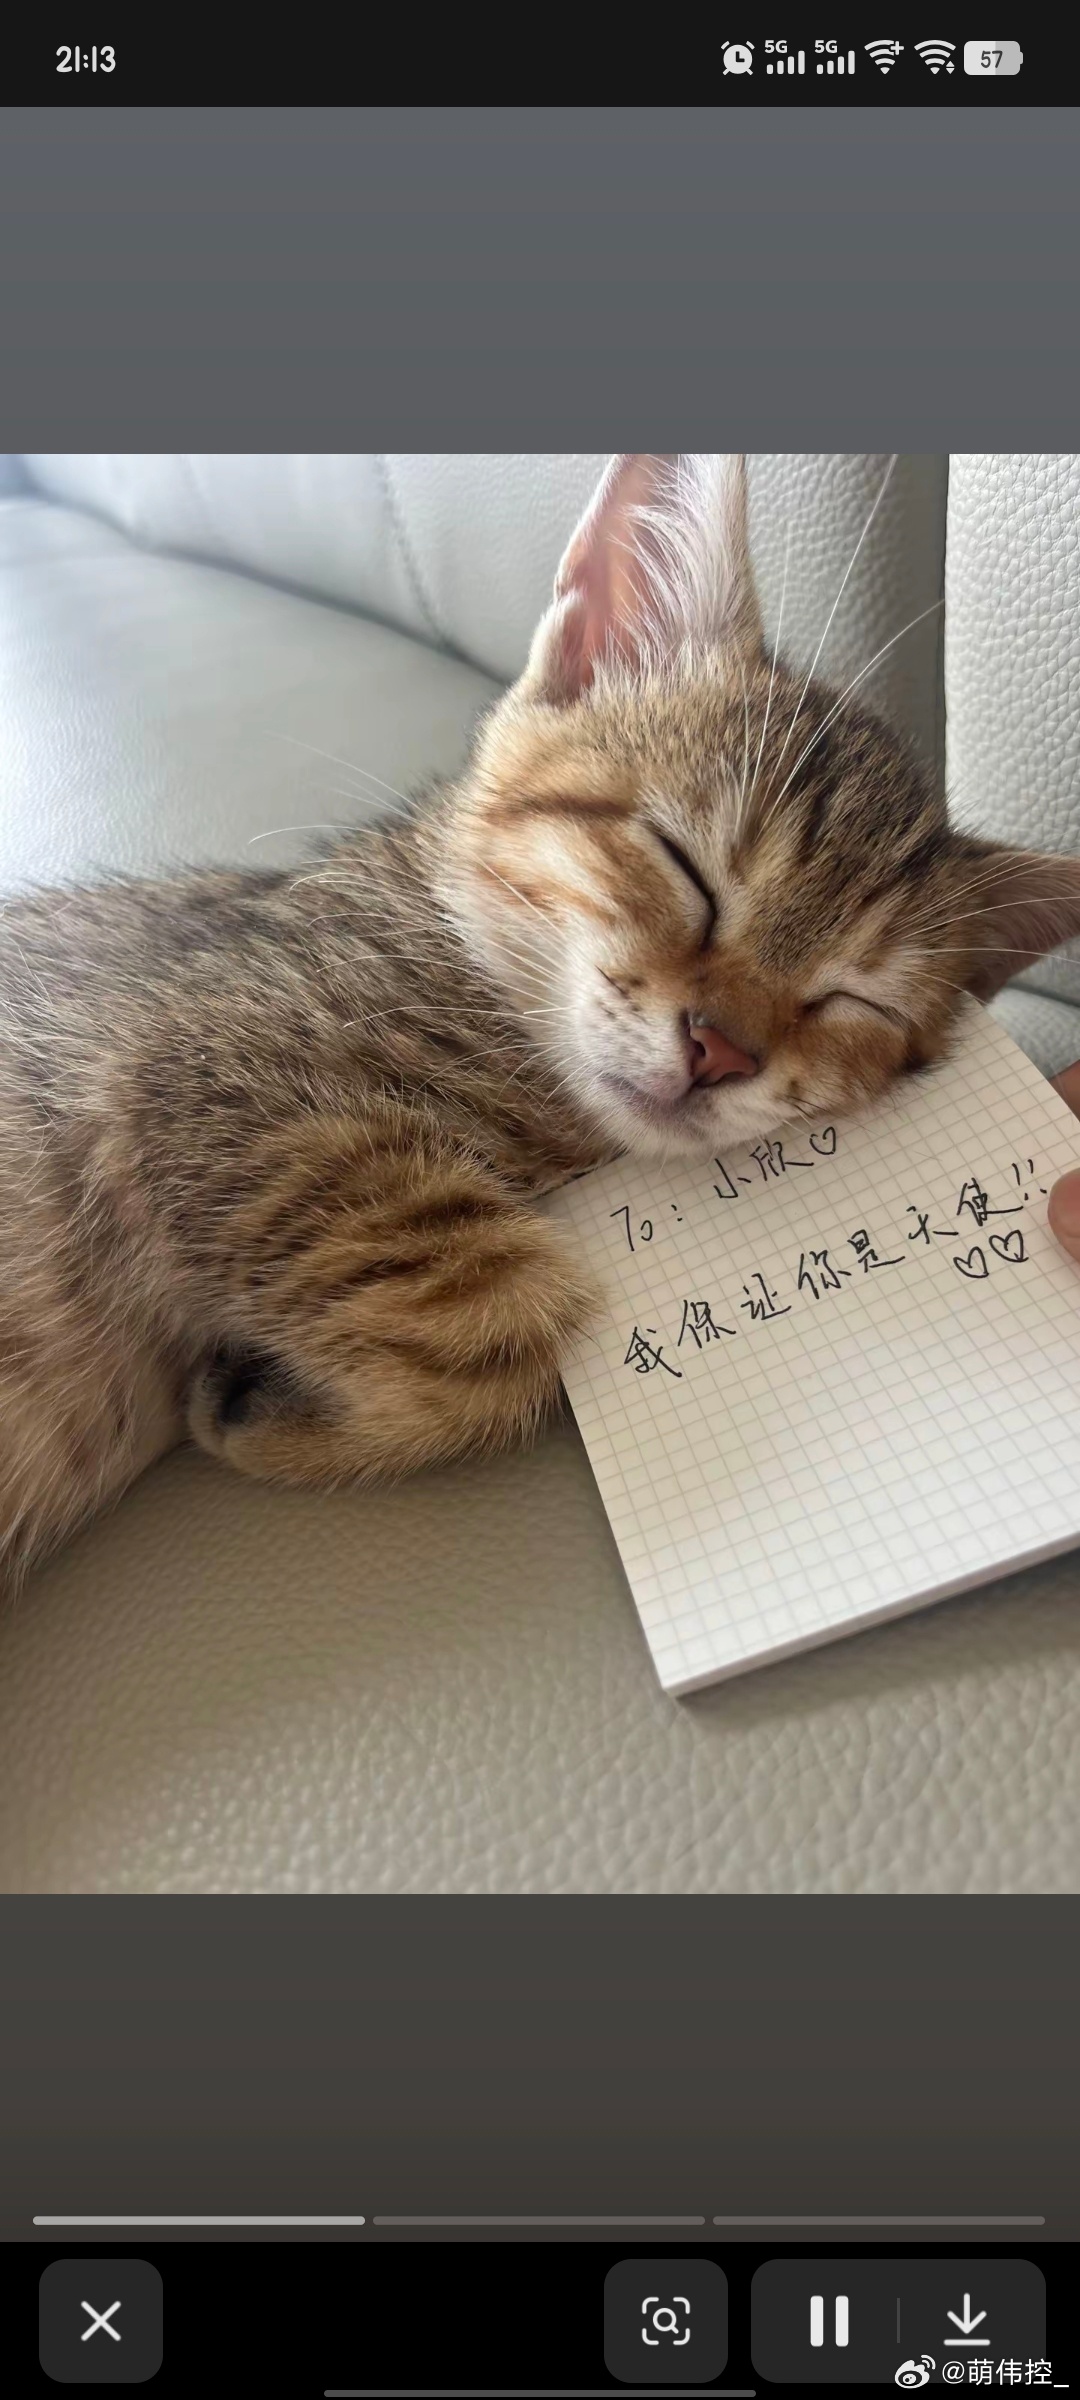 21:13
5G 5G 57
To: 小欣♡
我保证你是天使!!
♡♡
@萌伟控_